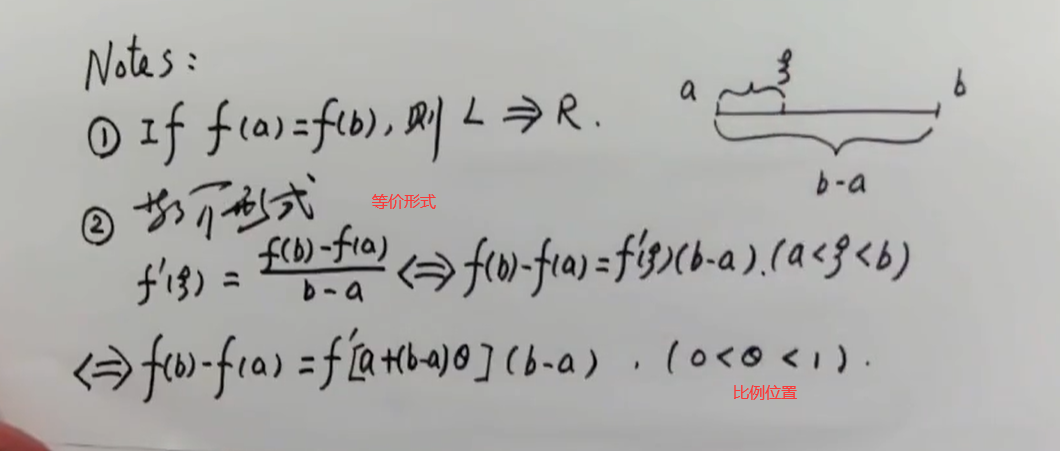 Notes:
① If f(a)=f(b), 则 L ⇒ R.
a ξ b
b-a
② 等价形式 等价形式
f'(ξ) = \frac{f(b)-f(a)}{b-a} ⇔ f(b)-f(a)=f'(ξ)(b-a). (a<ξ<b)
⇔ f(b)-f(a)=f'[a+(b-a)θ](b-a). (0<θ<1).
比例位置